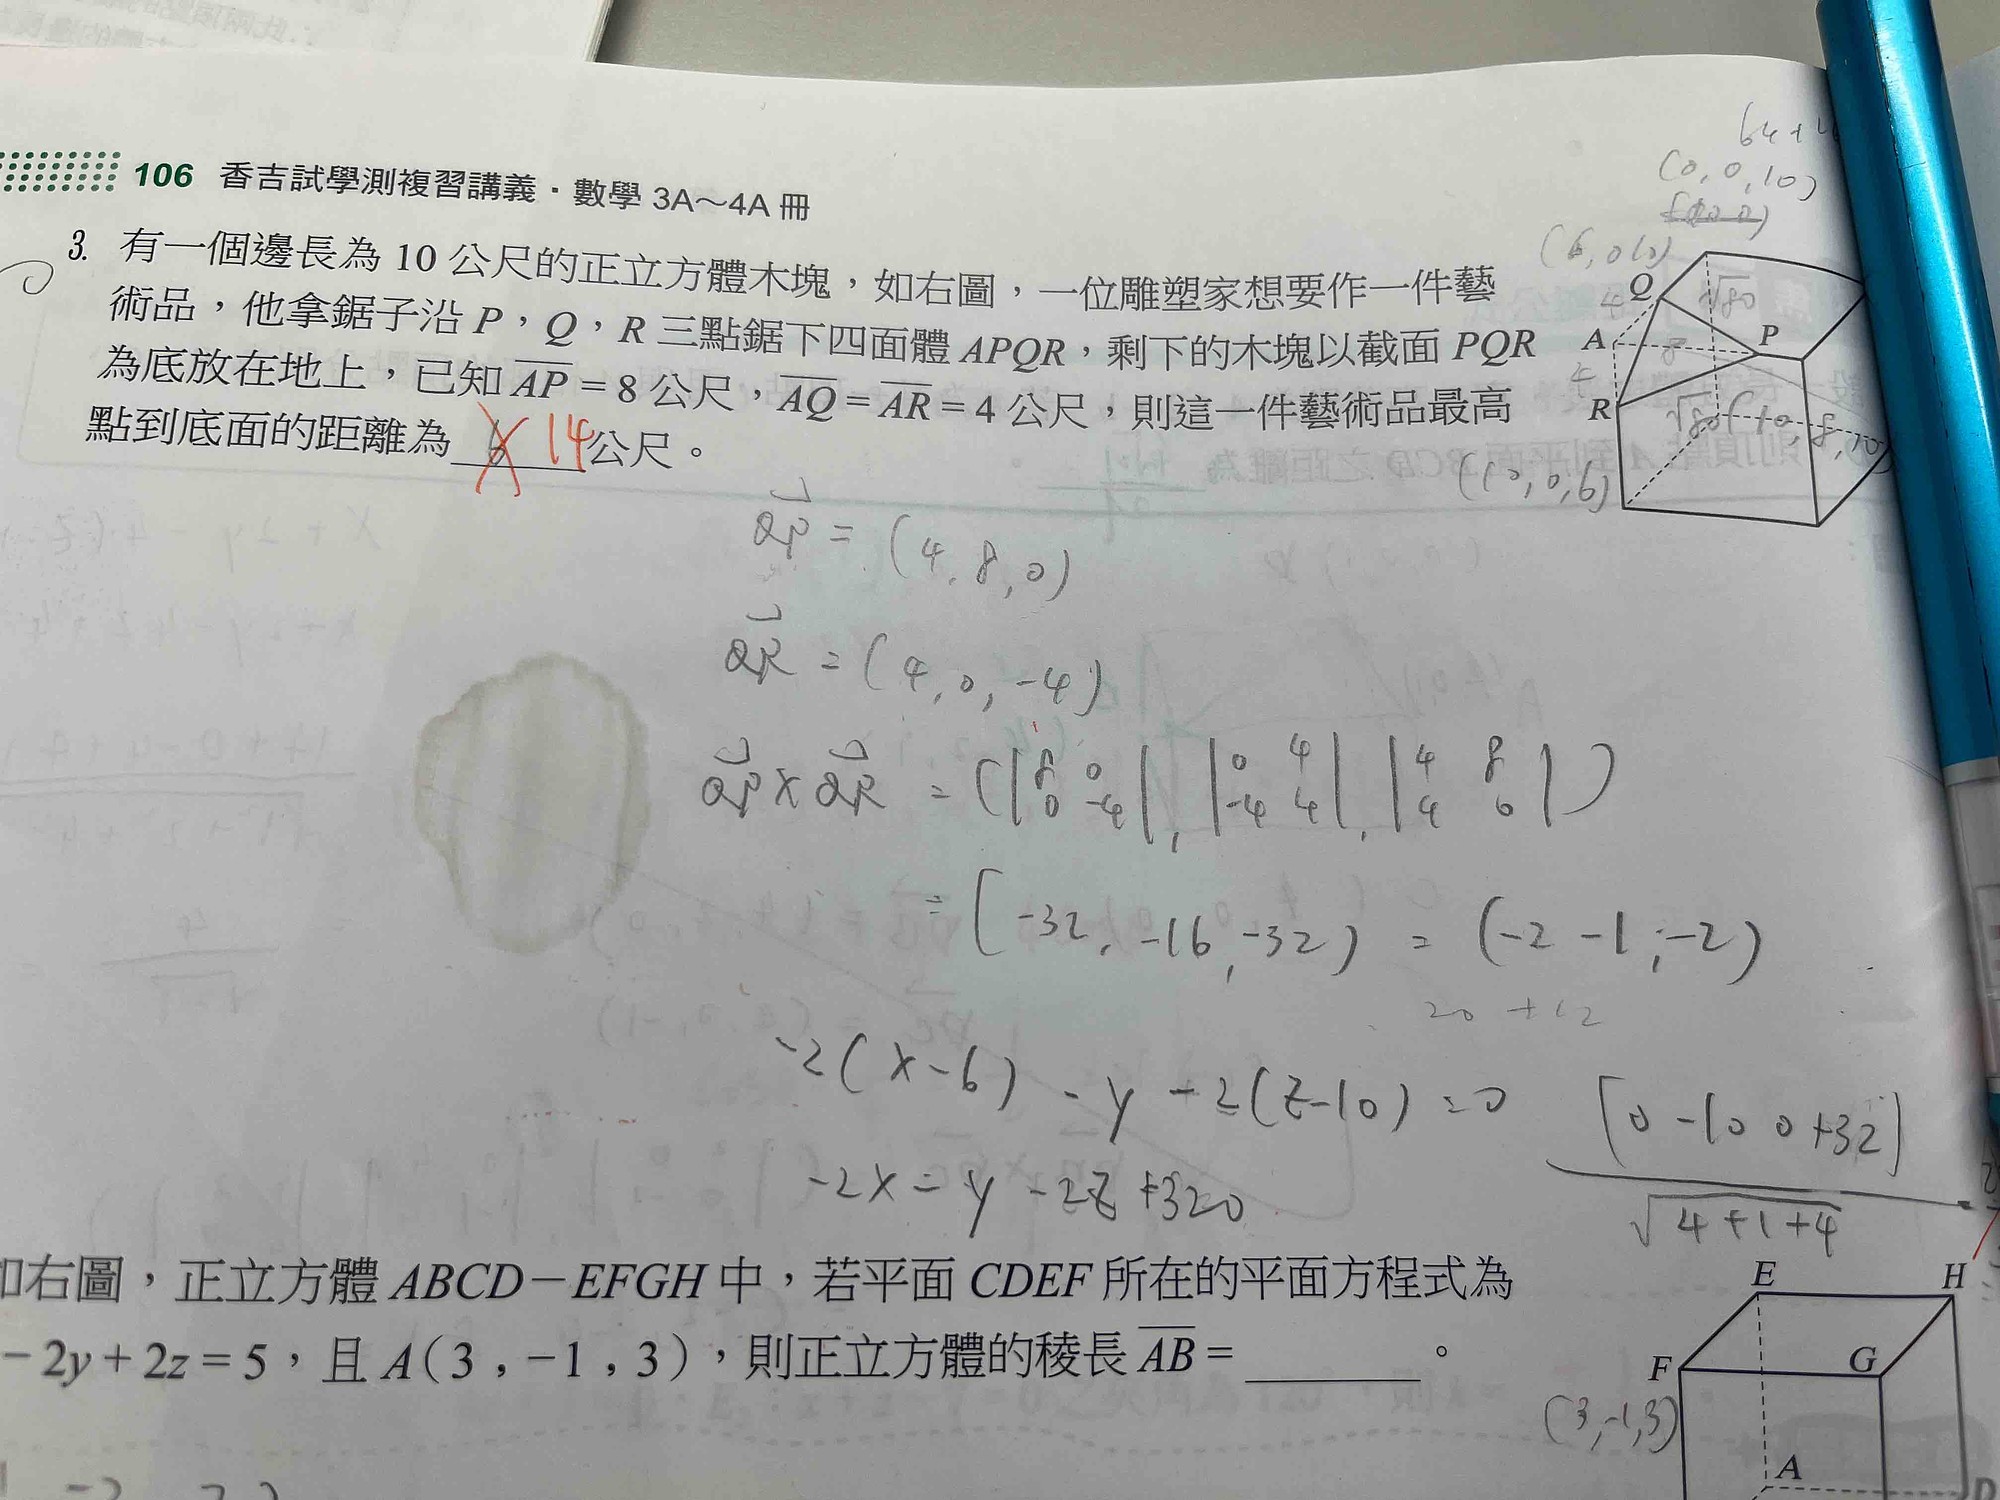 106 香吉試學測複習講義・數學 3A～4A 冊
64+
(0,0,10)
(6,0,10)
3. 有一個邊長為 10 公尺的正立方體木塊，如右圖，一位雕塑家想要作一件藝
術品，他拿鋸子沿 P，Q，R 三點鋸下四面體 APQR，剩下的木塊以截面 PQR
為底放在地上，已知 AP = 8 公尺，AQ = AR = 4 公尺，則這一件藝術品最高
點到底面的距離為 14 公尺。
Q
4
√80
A
8
P
4
R
√80
(10,8,10)
(10,0,6)
QP = (4,8,0)
QR = (4,0,-4)
QP × QR = (|8 0|, |0 4|, |4 8|)
|0 -4| |-4 4| |4 0|
= (-32, -16, -32) = (-2 -1, -2)
20 +12
-2(x-6) - y - 2(z-10) = 0
|0 -10 0 +32|
√4+1+4
-2x = y - 2z +320
如右圖，正立方體 ABCD－EFGH 中，若平面 CDEF 所在的平面方程式為
- 2y + 2z = 5，且 A(3，-1，3)，則正立方體的稜長 AB = ______。
E
H
F
G
(3,-1,3)
A
D